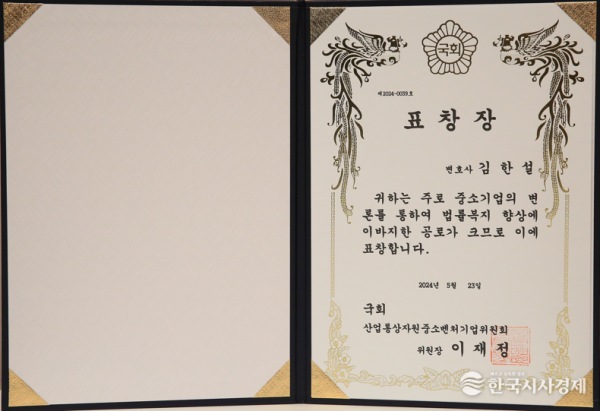 국회
제2024-0039호
표 창 장
변호사 김 한 설
귀하는 주로 중소기업의 변
론를 통하여 법률복지 향상에
이바지한 공로가 크므로 이에
표창합니다.
2024년 5월 23일
국회
산업통상자원중소벤처기업위원회
위원장 이 재 정
한국시사경제